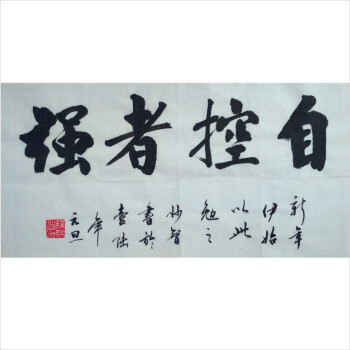 自控者强
新年
伊始
以此
勉之
妙智
書於
壹陆
年
元旦